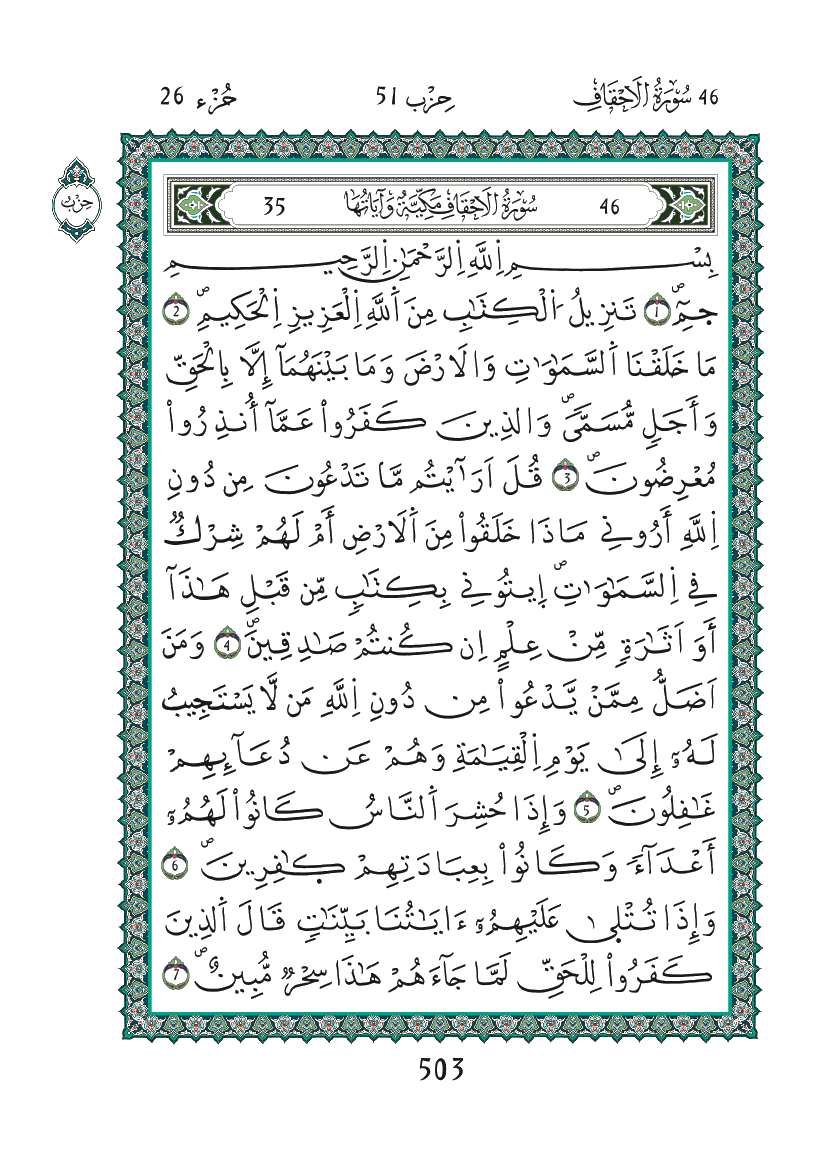 46 سُورَةُ الَاحْقَافِ
حِزْب 51
جُزْء 26
حِزْبُ
46 سُورَةُ الَاحْقَافِ مَكِّيَّةٌ وَءَايَاتُهَا 35
بِسْمِ اِللَّهِ اِلرَّحْمَٰنِ اِلرَّحِيمِ
جمٓۖ 1 تَنزِيلُ اُلْكِتَٰبِ مِنَ اَللَّهِ اِلْعَزِيزِ اِلْحَكِيمِۖ 2
مَا خَلَقْنَا اَلسَّمَٰوَٰتِ وَالَارْضَ وَمَا بَيْنَهُمَآ إِلَّا بِالْحَقِّ
وَأَجَلٖ مُّسَمّيٗۖ وَالذِينَ كَفَرُواْ عَمَّآ أُنذِرُواْ
مُعْرِضُونَۖ 3 قُلَ اَرَٰٓيْتُم مَّا تَدْعُونَ مِن دُونِ
اِللَّهِ أَرُونِے مَاذَا خَلَقُواْ مِنَ اَلَارْضِ أَمْ لَهُمْ شِرْكٞ
فِے اِلسَّمَٰوَٰتِۖ إِيتُونِے بِكِتَٰبٖ مِّن قَبْلِ هَٰذَآ
أَوَ اَثَٰرَةٖ مِّنْ عِلْمٍ اِن كُنتُمْ صَٰدِقِينَۖ 4 وَمَنَ
اَضَلُّ مِمَّنْ يَّدْعُواْ مِن دُونِ اِللَّهِ مَن لَّا يَسْتَجِيبُ
لَهُۥٓ إِلَىٰ يَوْمِ اِلْقِيَٰمَةِ وَهُمْ عَن دُعَآئِهِمْ
غَٰفِلُونَۖ 5 وَإِذَا حُشِرَ اَلنَّاسُ كَانُواْ لَهُمُۥٓ
أَعْدَآءٗ وَكَانُواْ بِعِبَادَتِهِمْ كٰ۪فِرِينَۖ 6
وَإِذَا تُتْل۪يٰ عَلَيْهِمُۥٓ ءَايَٰتُنَا بَيِّنَٰتٖ قَالَ اَلذِينَ
كَفَرُواْ لِلْحَقِّ لَمَّا جَآءَهُمْ هَٰذَا سِحْرٞ مُّبِينٌۖ 7
503